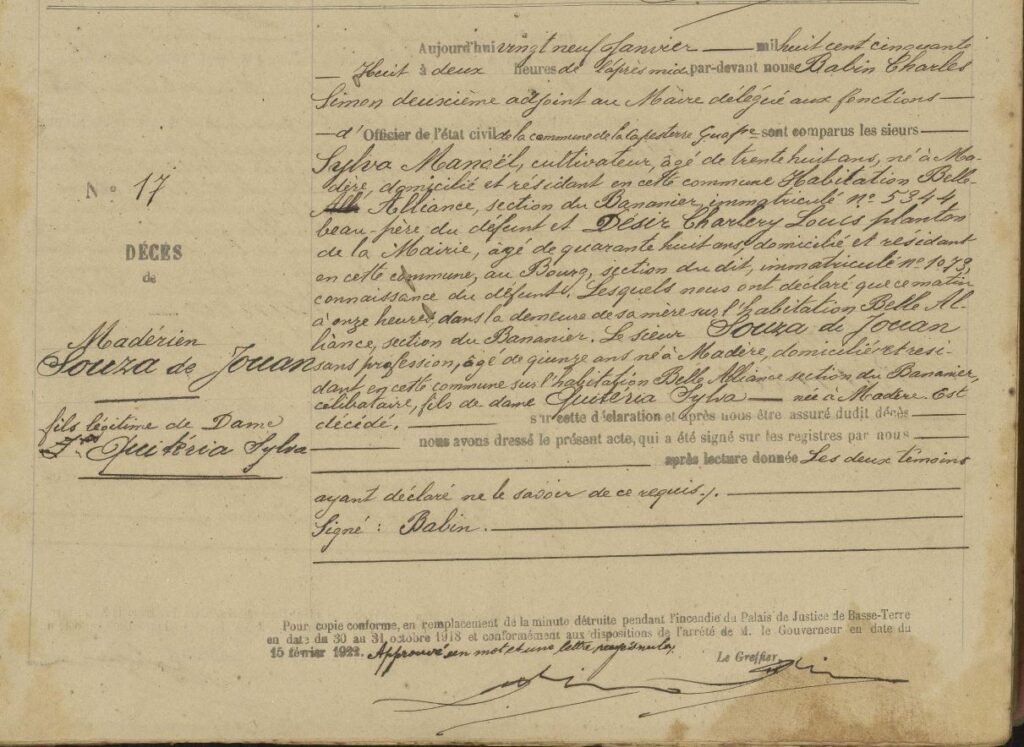 Aujourd'hui vingt neuf Janvier — mil huit cent cinquante
— Huit à deux heures de l'après midi par-devant nous Babin Charles
Simon deuxième adjoint au Maire délégué aux fonctions —
— d'Officier de l'état civil de la commune de la Capesterre Guadpe sont comparus les sieurs —
Sylva Manoël, cultivateur, âgé de trente huit ans, né à Ma-
dère, domicilié et résidant en cette commune Habitation Belle-
Alliance, section du Bananier, immatriculé nº 5344,
beau-père du défunt et Désir Charlery Louis planton
de la Mairie, âgé de quarante huit ans, domicilié et résidant
en cette commune, au Bourg, section du dit, immatriculé nº 1073,
connaissance du défunt. Lesquels nous ont déclaré que ce matin
à onze heures, dans la demeure de sa mère sur l'habitation Belle Al-
liance, section du Bananier. Le sieur Souza de Jouan
sans profession, âgé de quinze ans né à Madère, domicilié et rési-
dant en cette commune sur l'habitation Belle Alliance section du Bananier,
célibataire, fils de dame Quitéria Sylva — née à Madère. Est
décédé. — sur cette déclaration et après nous être assuré dudit décès —
nous avons dressé le présent acte, qui a été signé sur les registres par nous
après lecture donnée Les deux témoins
ayant déclaré ne le savoir de ce requis. —
Signé : Babin. —
Nº 17
DÉCÈS
de
Madérien
Souza de Jouan
fils légitime de Dame
Quitéria Sylva
Pour copie conforme, en remplacement de la minute détruite pendant l'incendie du Palais de Justice de Basse-Terre
en date du 30 au 31 octobre 1918 et conformément aux dispositions de l'arrêté de M. le Gouverneur en date du
15 février 1922. Approuvé un mot et une lettre rayés nuls.
Le Greffier,